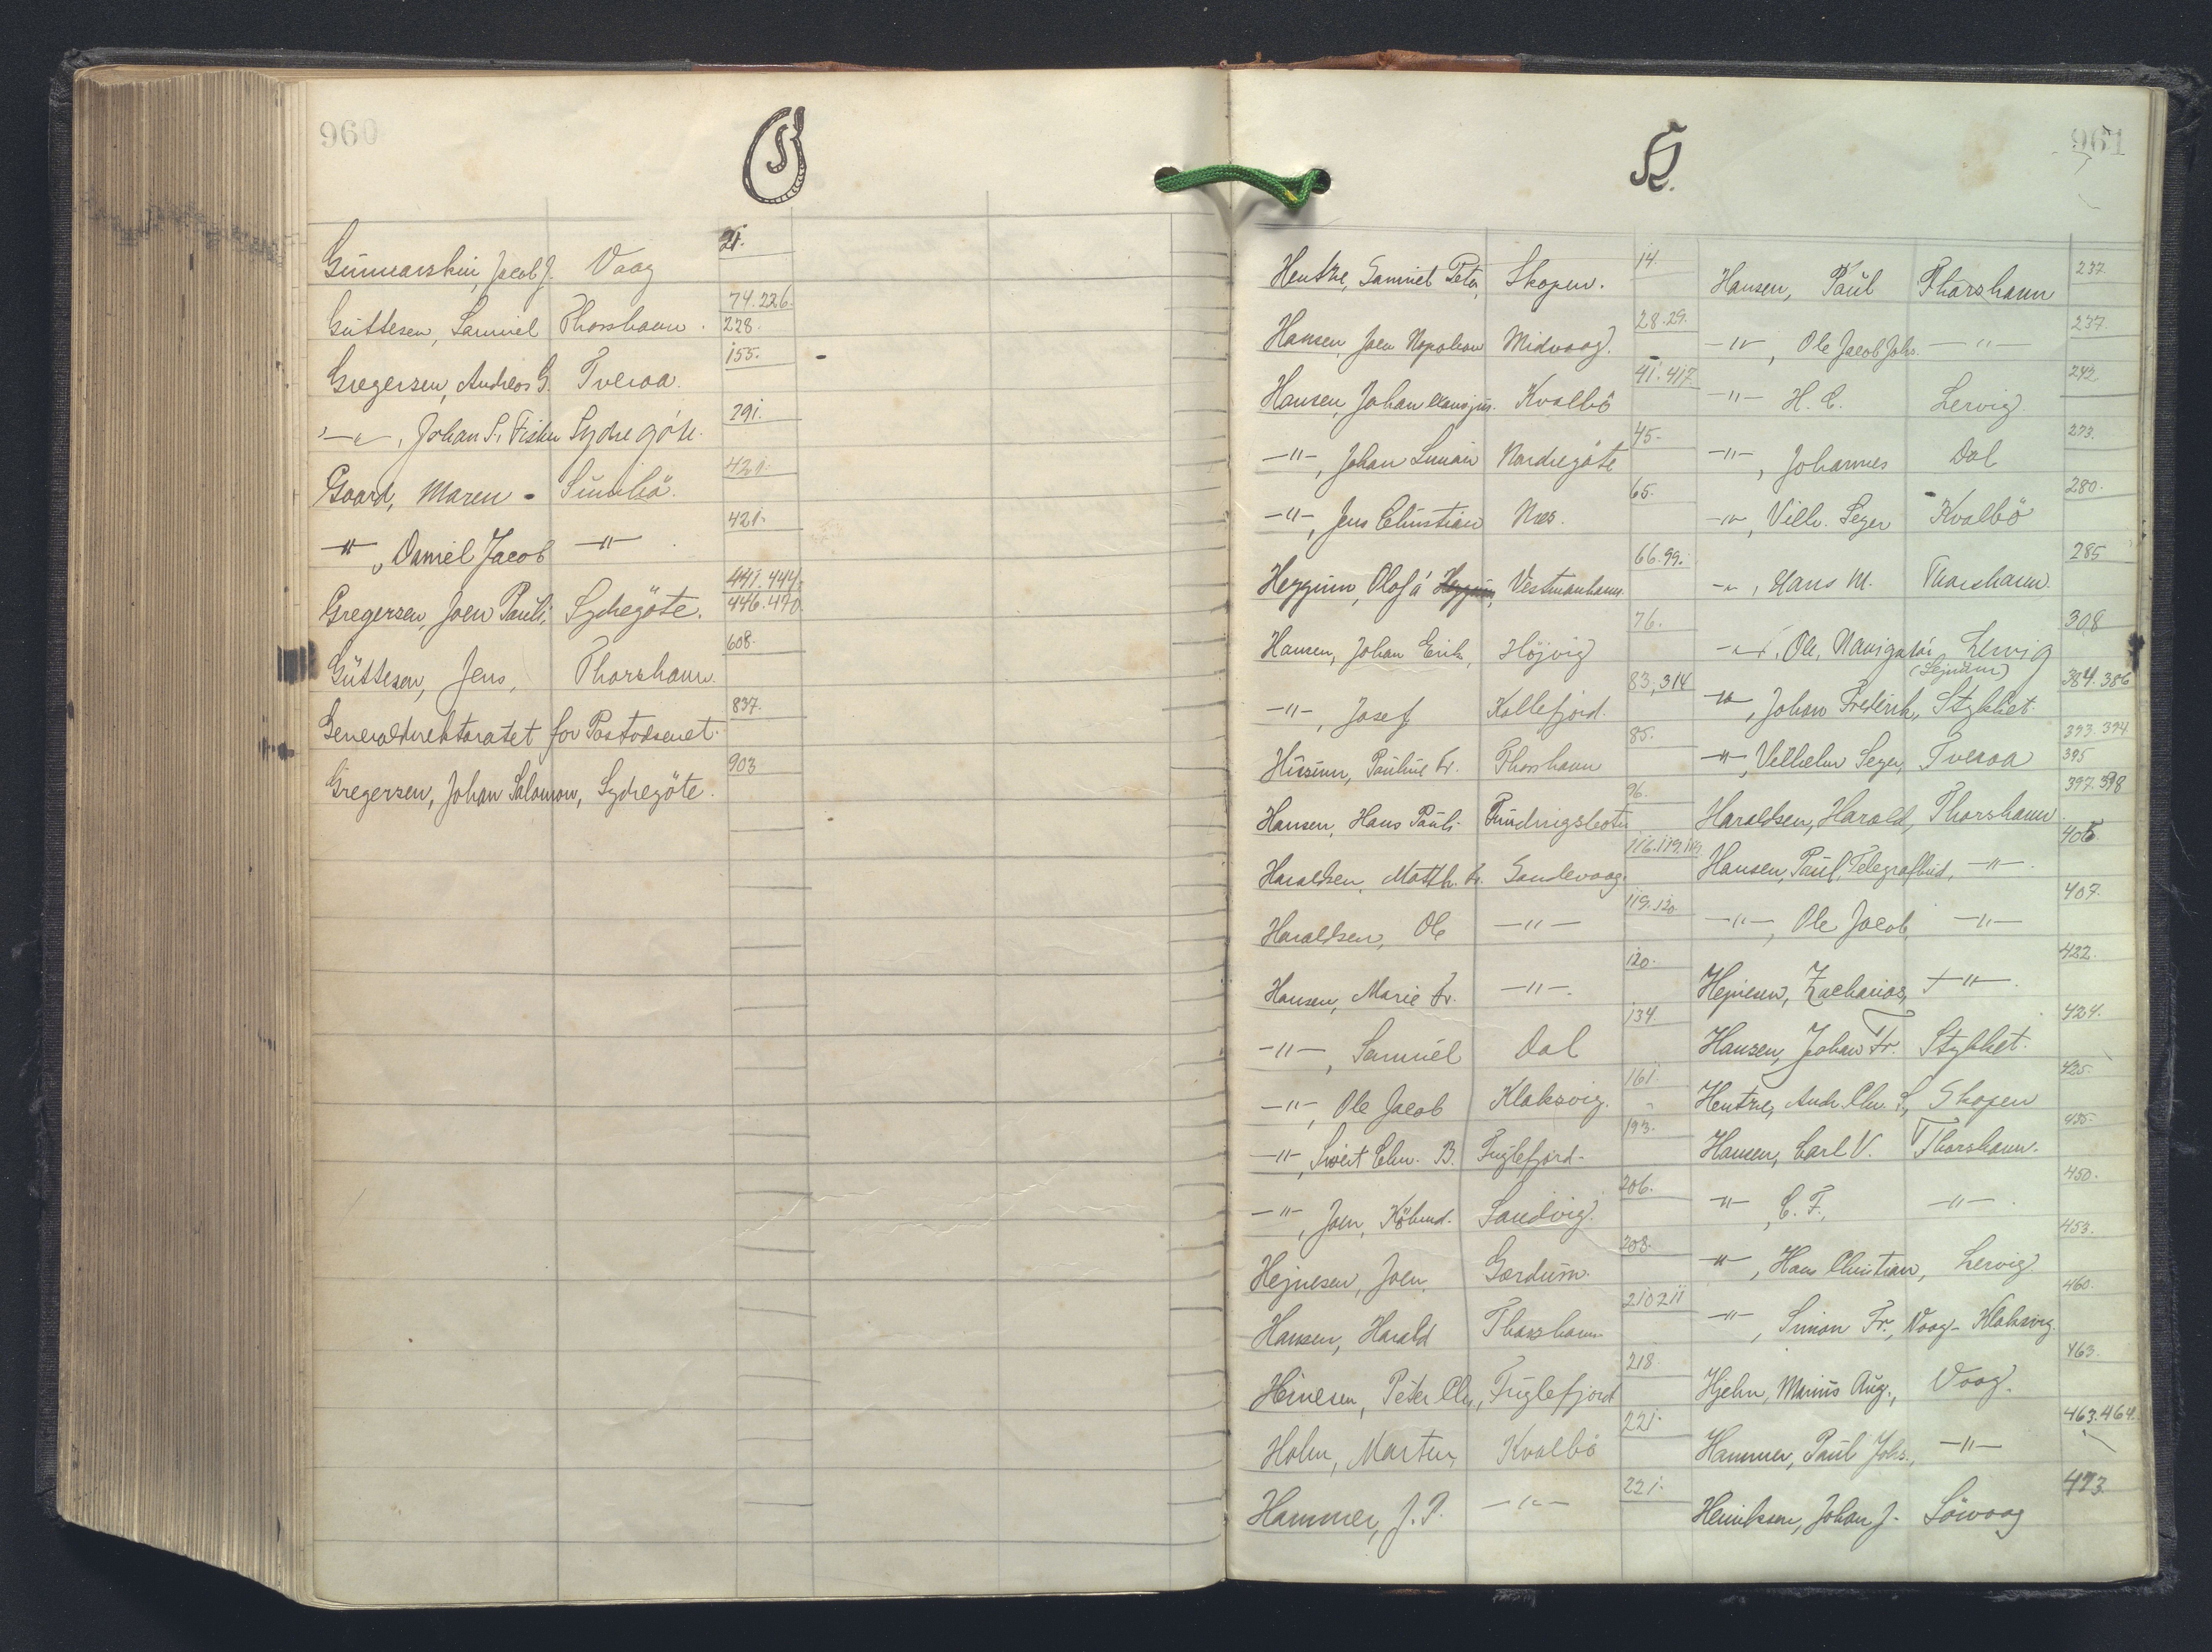 960
G
Gunnarstein, Jacob J. Vaag 21.
Guttesen, Samuel Thorshavn. 74.226. 228.
Gregersen, Andreas G. Tveraa. 155.
-"-, Johan S. Fisker Sydregöte. 291.
Gaard, Maren - Sumbö. 421.
-"-, Daniel Jacob -"- 421.
Gregersen, Joen Pauli, Sydregöte. 441.444. 446.490.
Guttesen, Jens, Thorshavn. 608.
Generaldirektoratet for Postvæsenet. 837.
Gregersen, Johan Salomon, Sydregöte. 903
961
H.
Hentze, Samuel Peter, Skopen. 14.
Hansen, Joen Napoleon Midvaag. 28.29.
Hansen, Johan Hans jun. Kvalbö 41.417.
-"-, Johan Simun Nordregöte 45.
-"-, Jens Christian Næs. 65.
Heygum, Olof á Vestmanhavn. 66.99.
Hansen, Johan Erik, Höjvig 76.
-"-, Josef Kollefjord. 83,314
Husum, Pauline Fr. Thorshavn 85.
Hansen, Hans Pauli Fundingsbotn 96.
Haraldsen, Matth. Fr. Sandevaag. 116.119.
Haraldsen, Ole -"- 119.120
Hansen, Marie Fr. -"-. 120.
-"-, Samuel Dal 134.
-"-, Ole Jacob Klaksvig. 161.
-"-, Sivert Chr. B. Fuglefjord. 193.
-"-, Joen, Köbmd. Sandvig. 206.
Hejnesen, Joen, Gærdum. 208.
Hansen, Harald Thorshavn 210 211
Heinesen, Peter Chr., Fuglefjord 218.
Holm, Martin, Kvalbö 221.
Hammer, J. P. -"- 221.
Hansen, Paul Thorshavn 237.
-"-, Ole Jacob Johs. -"- 237.
-"- H. C. Lervig. 242
-"-, Johannes Dal 273.
-"-, Vilh. Seyer Kvalbö 280.
-"-, Hans M. Thorshavn. 285
-"-, Ole, Navigatör Lervig 308
-"-, Johan Frederik, Stykket. 384.386
-"-, Vilhelm Seyer, Tveraa 393.394 395
Haraldsen, Harald, Thorshavn. 397.398
Hansen, Paul, Telegrafbud, -"-. 406
-"-, Ole Jacob, -"- 407.
Hejnesen, Zacharias, -"-. 422.
Hansen, Johan Fr. Stykket. 424.
Hentze, Andr. Chr. S., Skopen 425.
Hansen, Carl V. Thorshavn. 435.
-"-, C. F., -"-. 450.
-"-, Hans Christian, Lervig 453.
-"-, Simon Fr., Vaag - Klaksvig. 460.
Hjelm, Marius Aug., Vaag. 463.
Hammer, Paul Johs., -"- 463.464.
Henriksen, Johan J. Sörvaag 473.